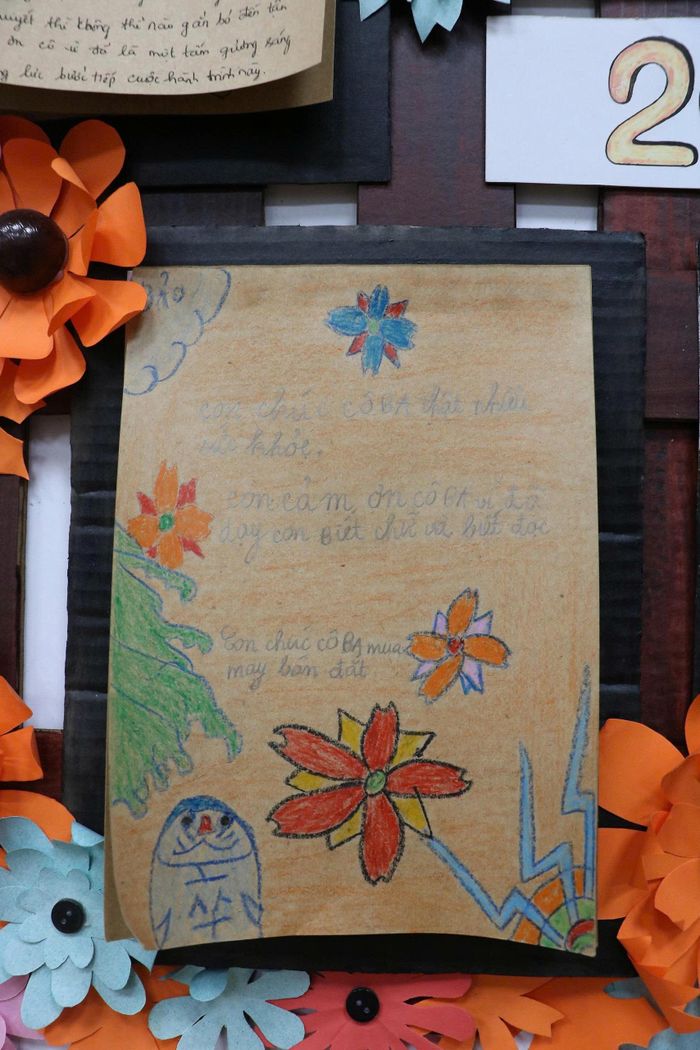 uyết thì không thể nào gắn bó đến tận
ơn cô vì đó là một tấm gương sáng
g lực bước tiếp cuộc hành trình này.
2
BẢO
con chúc cô BA thật nhiều
sức khỏe.
con cảm ơn cô BA vì đã
dạy con biết chữ và biết đọc
Con chúc cô BA mua
may bán đắt